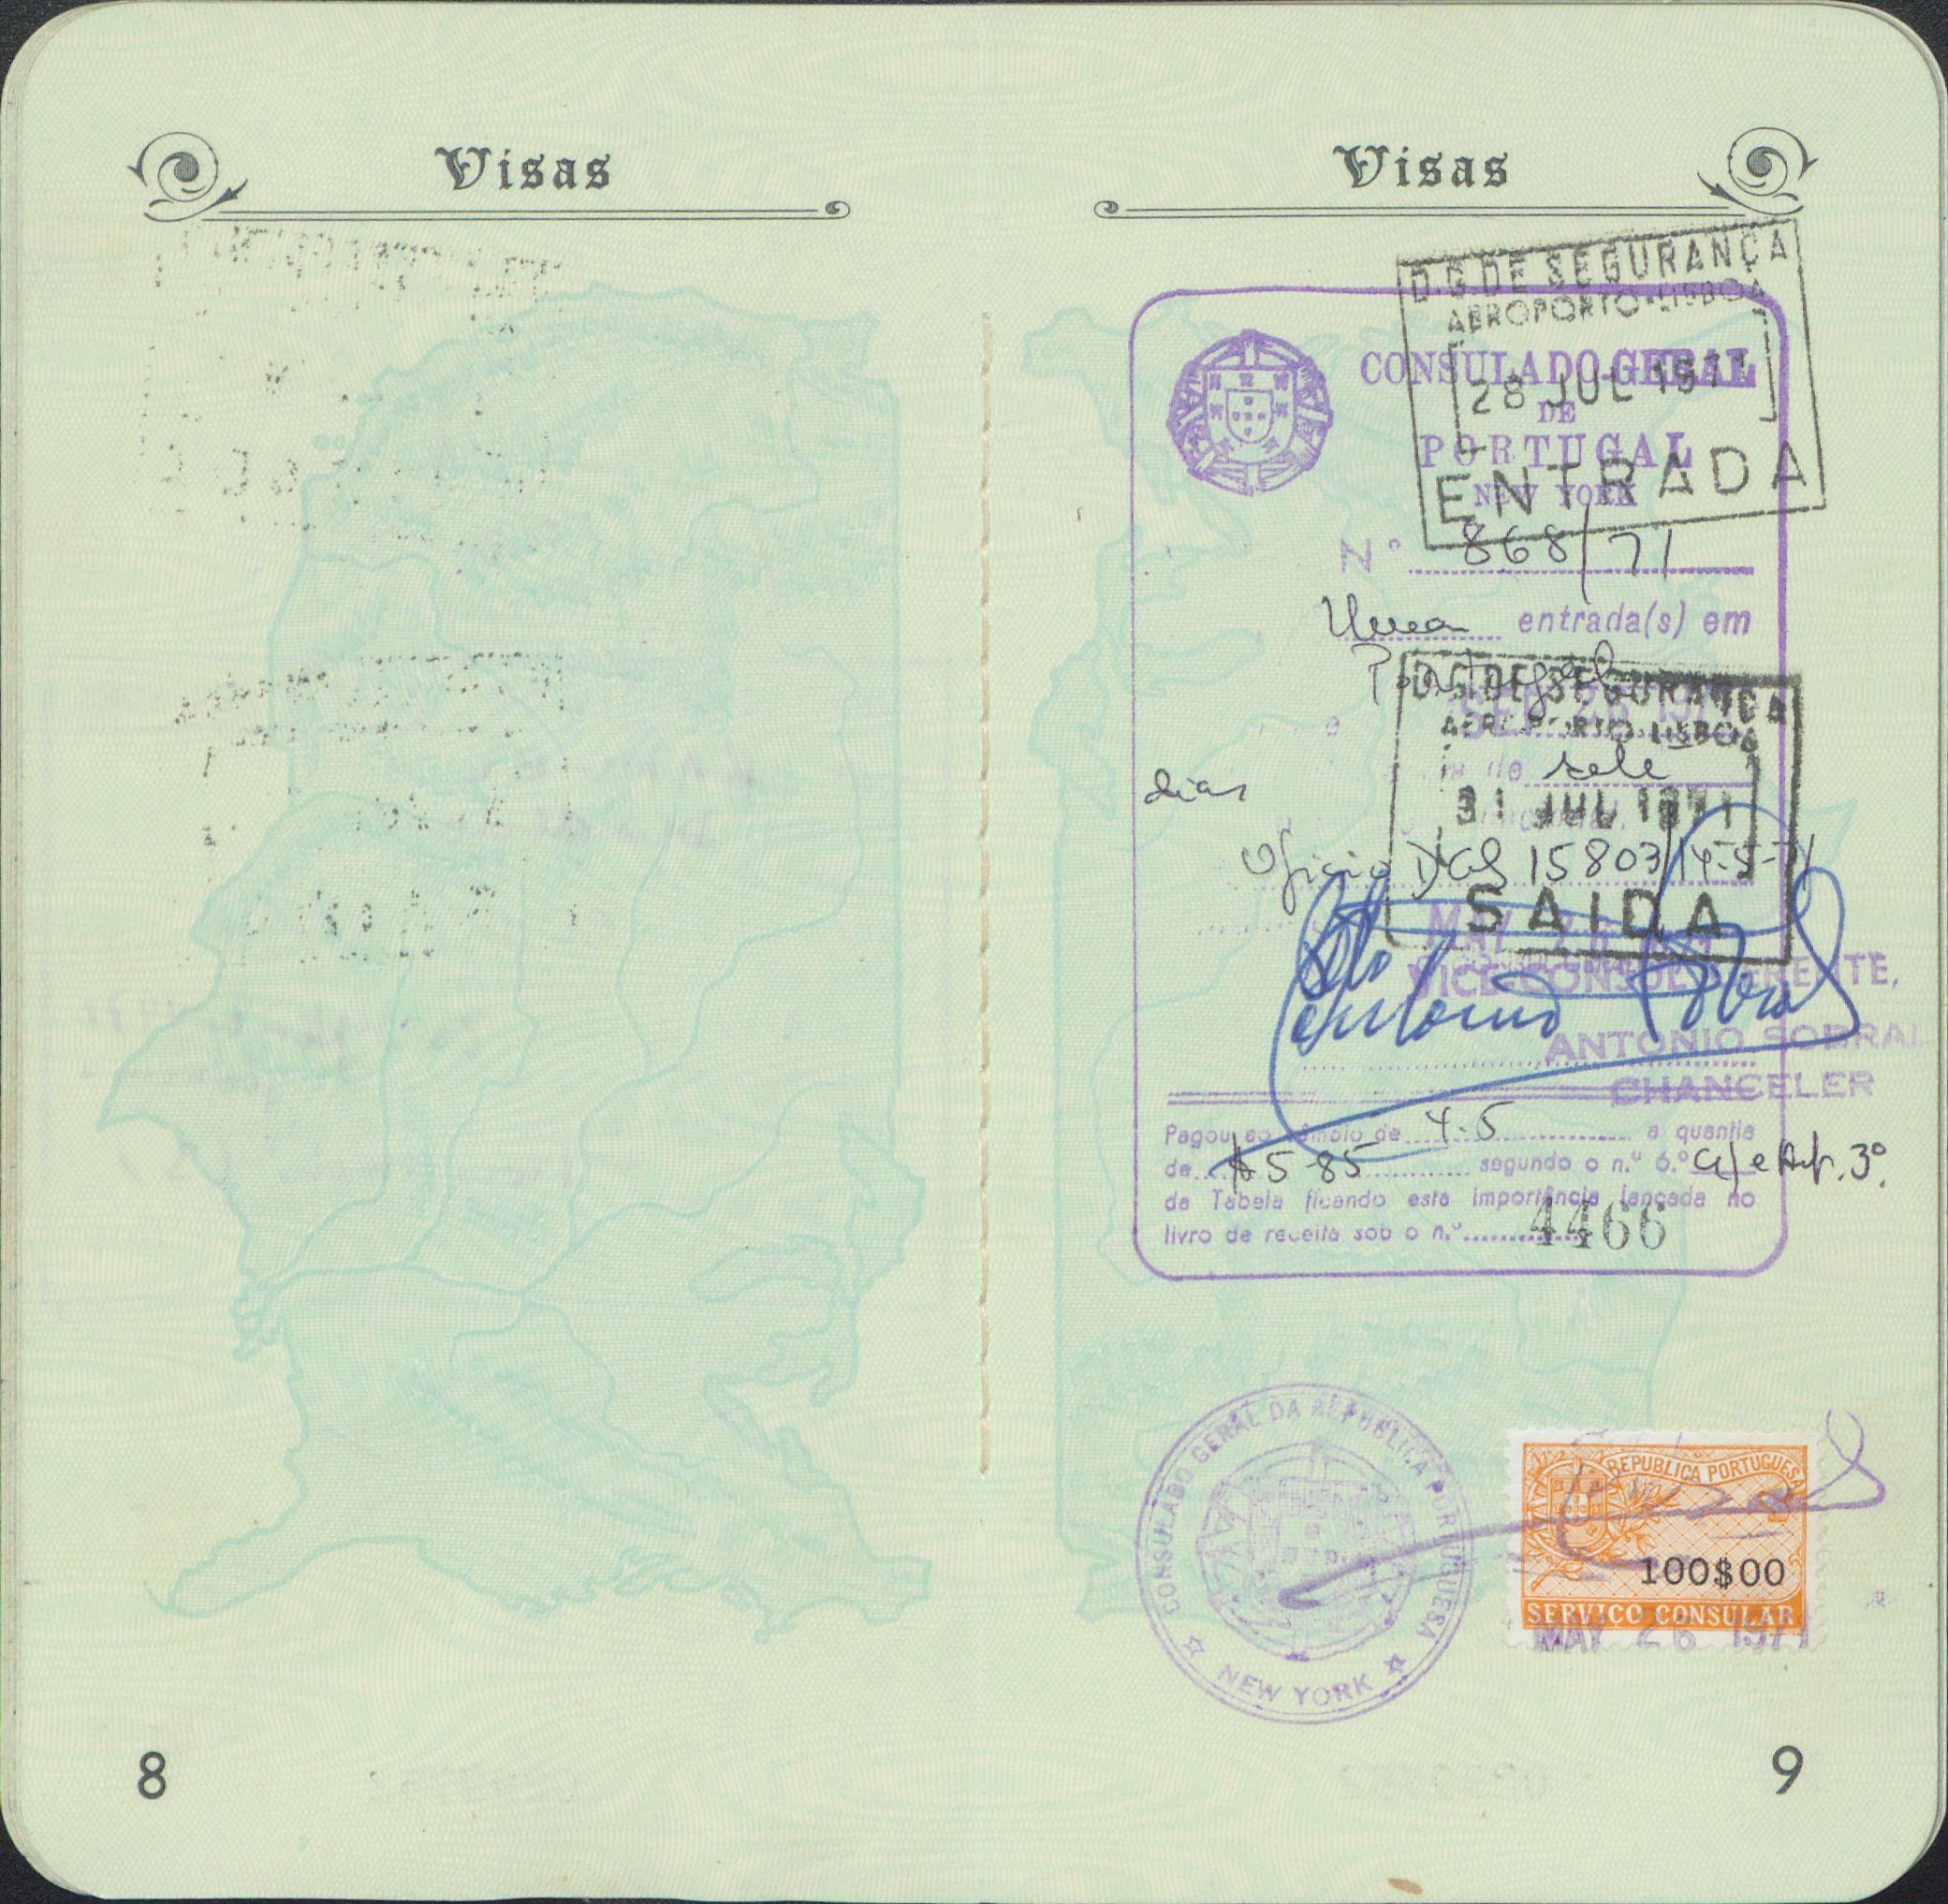 Visas
8
Visas
D.G. DE SEGURANÇA
AEROPORTO-LISBOA
28 JUL 1971
ENTRADA
CONSULADO-GERAL
DE
PORTUGAL
NEW YORK
Nº 868/71
Uma entrada(s) em
Portugal
D.G. DE SEGURANÇA
AEROPORTO LISBOA
de sete
dias
31 JUL 1971
Oficio DGS 15803/
SAIDA
MAY 26
VICE-CONSUL GERENTE,
Antonio Sobral
ANTONIO SOBRAL
CHANCELER
Pagou ao câmbio de a quantia
de $5-85 segundo o n.º 6.º a) e Art. 3º.
da Tabela ficando esta importância lançada no
livro de receita sob o n.º 4466
CONSULADO GERAL DA REPUBLICA PORTUGUESA
NEW YORK
REPUBLICA PORTUGUESA
100$00
SERVIÇO CONSULAR
MAY 26 1971
9